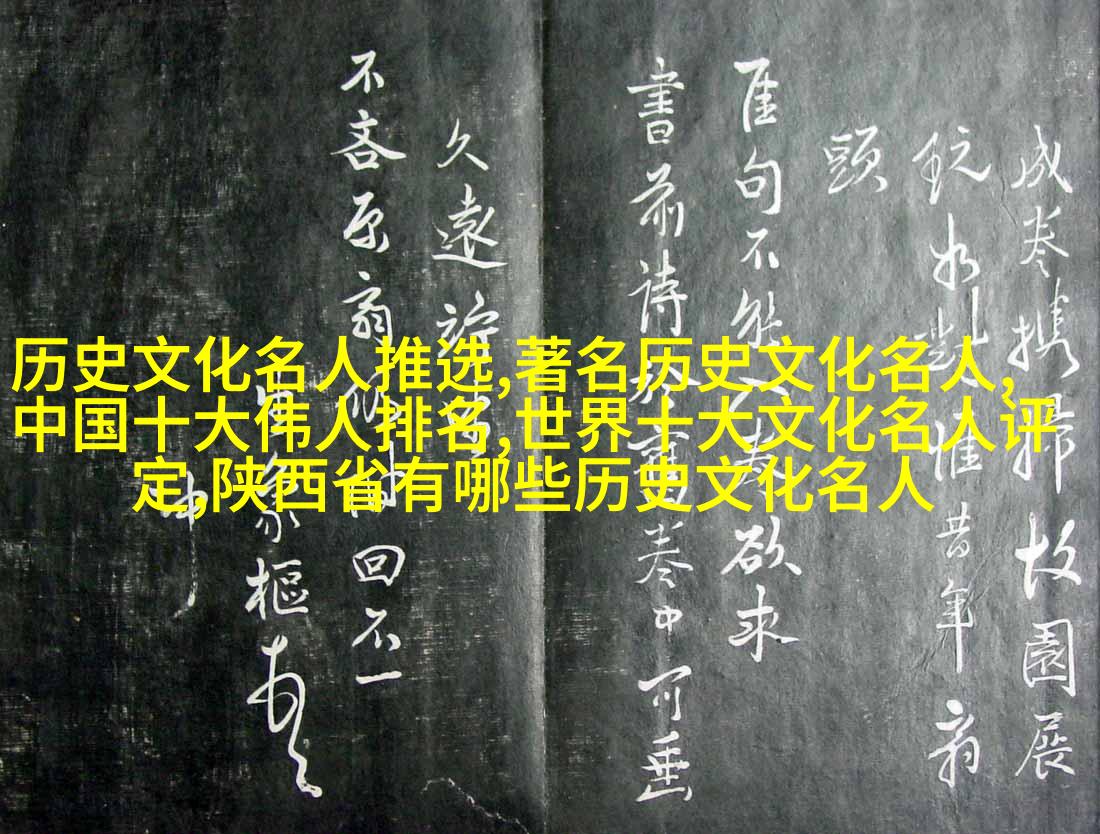 历史文化名人推选,著名历史文化名人,
中国十大伟人排名,世界十大文化名人评
定,陕西省有哪些历史文化名人
成卷携歸故園展
玩 惟昔年翁
頭
句不能 欲求
書前詩於 卷中可垂
久遠
不吝 回不一
象樞